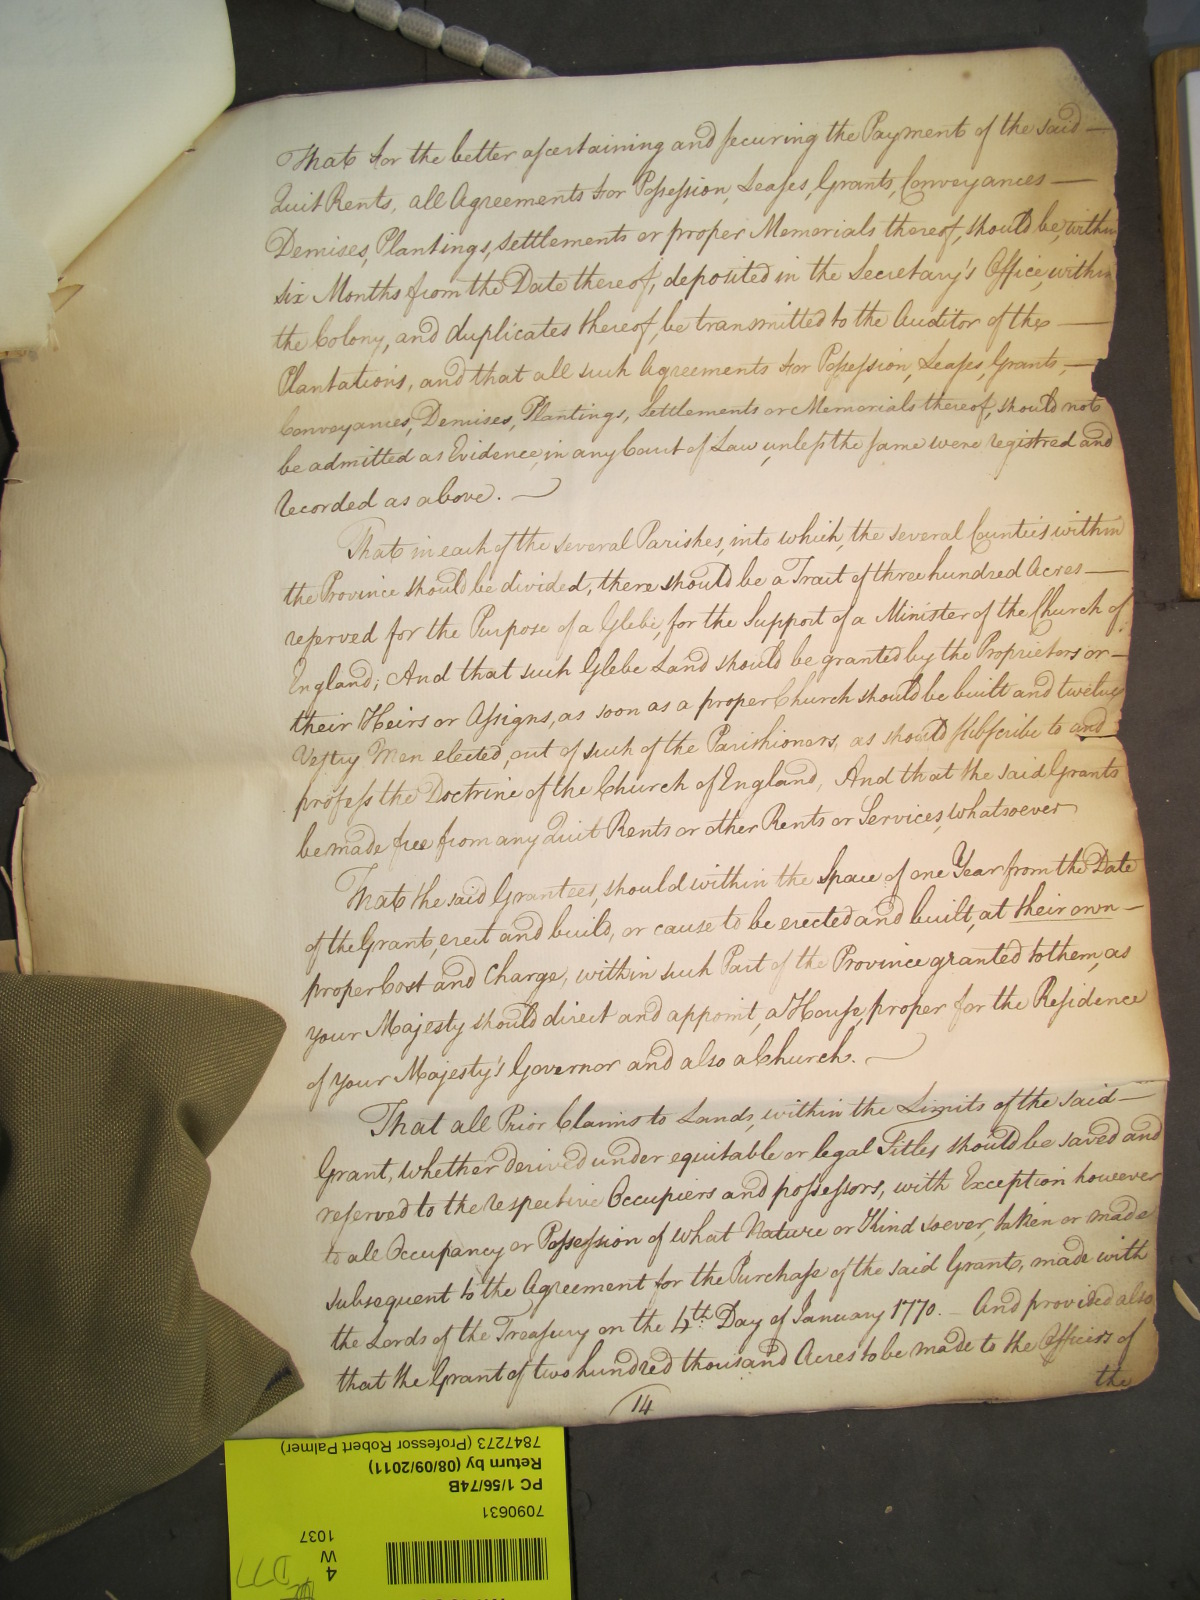 That for the better ascertaining and securing the Payment of the said —
Quit Rents, all Agreements for Possession, Leases, Grants, Conveyances —
Demises, Plantings, settlements or proper Memorials thereof, should be, within
six Months from the Date thereof, deposited in the Secretary's Office, within
the Colony, and duplicates thereof, be transmitted to the Auditor of the —
Plantations, and that all such Agreements for Possession, Leases, Grants, —
Conveyances, Demises, Plantings, Settlements or Memorials thereof, should not
be admitted as Evidence, in any Court of Law, unless the same were registred and
recorded as above. —
That in each of the several Parishes, into which, the several Counties within
the Province should be divided, there should be a Tract of three hundred Acres —
reserved for the Purpose of a Glebe, for the Support of a Minister of the Church of
England; And that such Glebe Land should be granted by the Proprietors or —
their Heirs or Assigns, as soon as a proper Church should be built and twelve
Vestry Men elected, out of such of the Parishioners, as should subscribe to and
profess the Doctrine of the Church of England, And that the said Grants
be made free from any Quit Rents or other Rents or Services, whatsoever
That the said Grantees, should within the Space of one Year from the Date
of the Grant, erect and build, or cause to be erected and built, at their own —
proper Cost and Charge, within such Part of the Province granted to them, as
your Majesty should direct and appoint, a House, proper for the Residence
of your Majesty's Governor and also a Church. —
That all Prior Claims to Lands, within the Limits of the said —
Grant, whether derived under equitable or legal Titles should be saved and
reserved to the respective Occupiers and possessors, with Exception however
to all Occupancy or Possession of what Nature or Kind soever, taken or made
subsequent to the Agreement for the Purchase of the said Grant, made with
the Lords of the Treasury on the 4th. Day of January 1770. — And provided also
that the Grant of two hundred thousand Acres to be made to the Officers of
the
14
7847273 (Professor Robert Palmer)
Return by (08/09/2011)
PC 1/56/74B
7090631
4
W
1037
D77